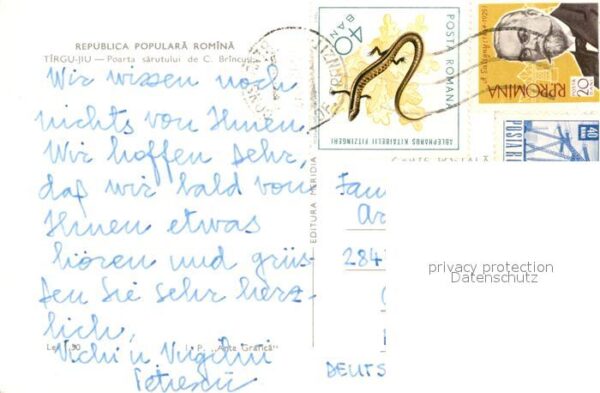 REPUBLICA POPULARĂ ROMÎNĂ
TÎRGU-JIU — Poarta sărutului de C. Brîncuși
Wir wissen noch
nichts von Ihnen.
Wir hoffen sehr,
daß wir bald von
Ihnen etwas
hören und grüs-
sen Sie sehr herz-
lich,
Vichi u Virgiliu
Petrescu
Lei 1,30
I. P. „Arta Grafică“
EDITURA MERIDIA
POSTA ROMANA
40 BANI
ABLEPHARUS KITAIBELII FITZINGERI
A. Saligny (1854-1925)
R.P.ROMINA
20
40 BANI
POSTA R
Fam
Ar
284
DEUTS
privacy protection
Datenschutz